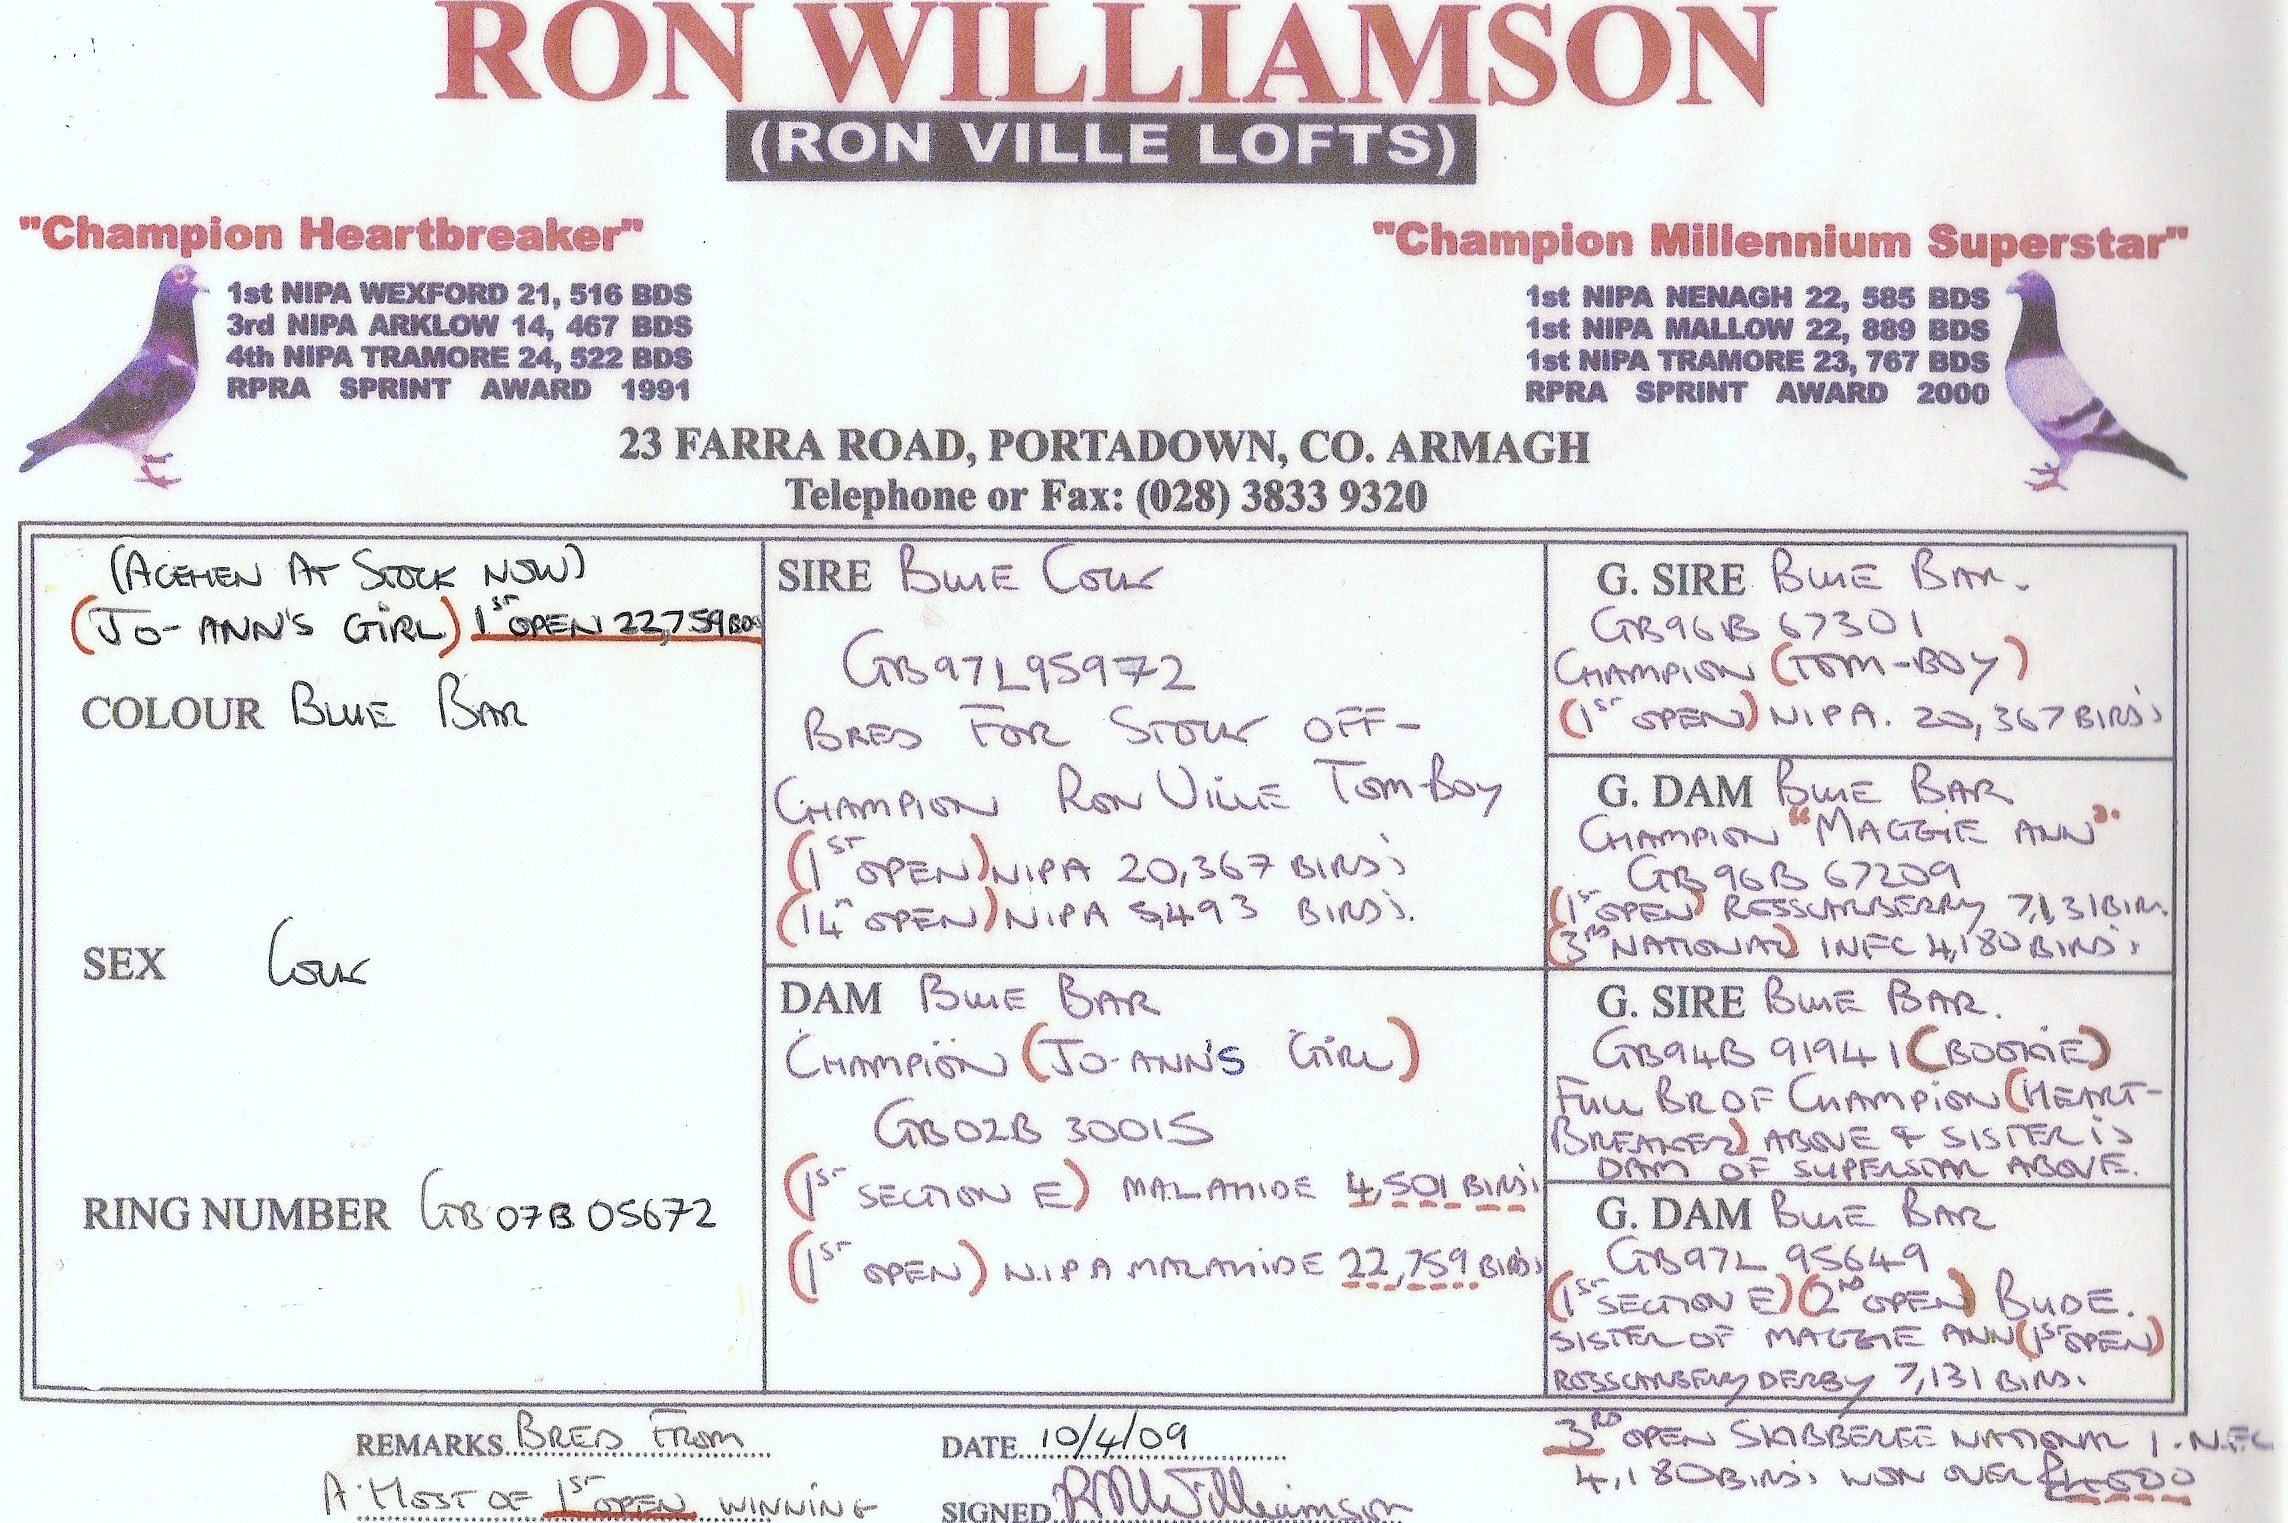 RON WILLIAMSON
(RON VILLE LOFTS)
"Champion Heartbreaker"
1st NIPA WEXFORD 21, 516 BDS
3rd NIPA ARKLOW 14, 467 BDS
4th NIPA TRAMORE 24, 522 BDS
RPRA SPRINT AWARD 1991
"Champion Millennium Superstar"
1st NIPA NENAGH 22, 585 BDS
1st NIPA MALLOW 22, 889 BDS
1st NIPA TRAMORE 23, 767 BDS
RPRA SPRINT AWARD 2000
23 FARRA ROAD, PORTADOWN, CO. ARMAGH
Telephone or Fax: (028) 3833 9320
(ACEHEN AT STOCK NOW)
(JO-ANN'S GIRL) 1ST OPEN 22,759 BDS
COLOUR BLUE BAR
SEX COCK
RING NUMBER GB 07B 05672
SIRE BLUE COCK
GB97L95972
BRED FOR STOCK OFF-
CHAMPION RON VILLE TOM-BOY
(1ST OPEN) NIPA 20,367 BIRD'S
(14TH OPEN) NIPA 5,493 BIRD'S.
DAM BLUE BAR
CHAMPION (JO-ANN'S GIRL)
GB02B 30015
(1ST SECTION E) MALAHIDE 4,501 BIRD'S
(1ST OPEN) N.I.P.A MALAHIDE 22,759 BIRD'S
G. SIRE BLUE BAR.
GB96B 67301
CHAMPION (TOM-BOY)
(1ST OPEN) NIPA. 20,367 BIRD'S
G. DAM BLUE BAR
CHAMPION "MAGGIE ANN".
GB96B 67209
(1ST OPEN) ROSSCARBERRY 7,131 BIR.
(3RD NATIONAL) INFC 4,180 BIRD'S
G. SIRE BLUE BAR.
GB94B 91941 (BOOKIE)
FULL BR OF CHAMPION (HEART-
BREAKER) ABOVE & SISTER IS
DAM OF SUPERSTAR ABOVE.
G. DAM BLUE BAR
GB97L 95649
(1ST SECTION E) (2ND OPEN) BUDE.
SISTER OF MAGGIE ANN (1ST OPEN)
ROSSCARBERY DERBY 7,131 BIRD.
3RD OPEN SKIBBEREE NATIONAL I.N.F.C
4,180 BIRD'S WON OVER £4,000
REMARKS BRED FROM
A HOST OF 1ST OPEN WINNING
DATE 10/4/09
SIGNED R Williamson